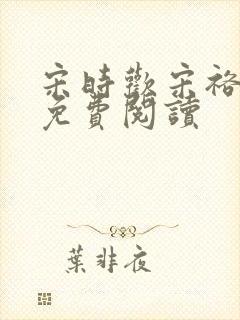 宋時歡宋裕
免費閱讀
葉非夜